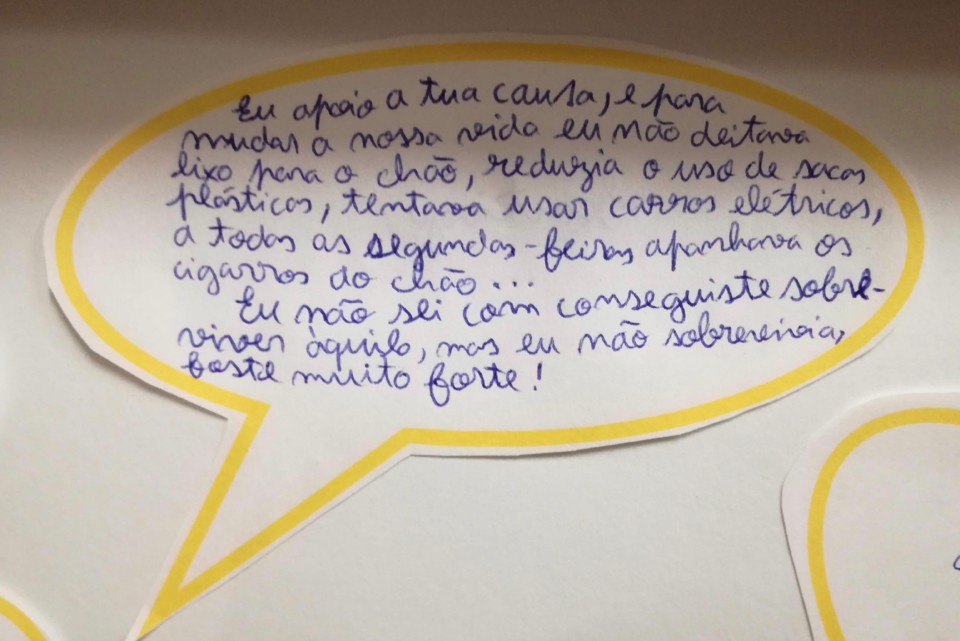 Eu apoio a tua causa, e para
mudar a nossa vida eu não deitava
lixo para o chão, reduzia o uso de sacos
plásticos, tentava usar carros elétricos,
a todas as segundas-feiras apanhava os
cigarros do chão...
Eu não sei com conseguiste sobre-
viver àquilo, mas eu não sobrevivia,
foste muito forte!